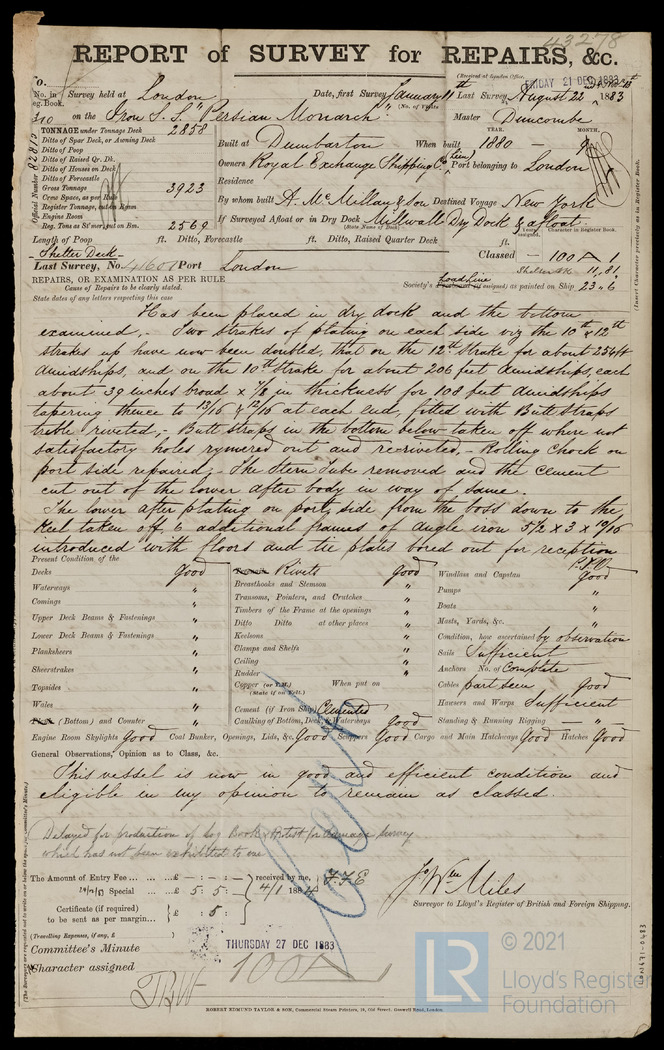 43278
REPORT of SURVEY for REPAIRS, &c.
(Received at London Office,
FRIDAY 21 DEC 1883
No. in Survey held at London Date, first Survey January 11th Last Survey August 22 1883
Reg. Book.
310 on the Iron S. S. "Persian Monarch" (No. of Visits Master Duncombe
TONNAGE under Tonnage Deck 2858
Ditto of Spar Deck, or Awning Deck
Ditto of Poop
Ditto of Raised Qr. Dk.
Ditto of Houses on Deck
Ditto of Forecastle
Gross Tonnage 3923
Crew Space, as per Rule
Register Tonnage, cut on Beam
Engine Room
Reg. Tons as St'mer, cut on Bm. 2569
Official Number 82810
YEAR. MONTH.
Built at Dumbarton When built 1880 - 9
Owners Royal Exchange Shipping Co (Lim) Port belonging to London
Residence
By whom built A. McMillan & Son Destined Voyage New York
If Surveyed Afloat or in Dry Dock Millwall Dry Dock & afloat
(State Name of Dock)
Years assigned. Character in Register Book.
(Insert Character precisely as in Register Book.
Length of Poop ft. Ditto, Forecastle ft. Ditto, Raised Quarter Deck ft.
Shelter Deck
Classed 100 A 1
Shelter dk 11,81
Last Survey, No. 41601 Port London
Society's Load Line (if assigned) as painted on Ship 23-6
REPAIRS, OR EXAMINATION AS PER RULE
Cause of Repairs to be clearly stated.
State dates of any letters respecting this case
Has been placed in dry dock and the bottom
examined, - Two strakes of plating on each side viz the 10th & 12th
strakes up have now been doubled, that on the 12th Strake for about 254ft
amidships, and on the 10th strake for about 206 feet amidships, each
about 39 inches broad x 7/8 in thickness for 108 feet amidships
tapering thence to 13/16 & 12/16 at each end, fitted with Butt straps
treble riveted, - Butt straps in the bottom below taken off where not
satisfactory holes rymered out and re-riveted, - Rolling Chock on
port side repaired, - The Stern Tube removed and the cement
cut out of the lower after body in way of same.
The lower after plating on port side from the boss down to the
Keel taken off, 6 additional frames of angle iron 5 1/2 x 3 x 10/16
introduced with floors and tie plates bored out for reception
P.T.O.
Present Condition of the
Decks Good
Waterways "
Comings "
Upper Deck Beams & Fastenings "
Lower Deck Beams & Fastenings "
Planksheers "
Sheerstrakes "
Topsides "
Wales "
(Bottom) and Counter "
Rivets Good
Breasthooks and Stemson "
Transoms, Pointers, and Crutches "
Timbers of the Frame at the openings "
Ditto Ditto at other places "
Keelsons "
Clamps and Shelfs "
Ceiling "
Rudder "
Copper (or Y.M.) When put on
(State if on Felt.)
Cement (if Iron Ship) Cemented
Caulking of Bottom, Deck, & Waterways good
Windlass and Capstan Good
Pumps "
Boats "
Masts, Yards, &c. "
Condition, how ascertained by observation
Sails Sufficient
Anchors No. of Complete
Cables part seen Good
Hawsers and Warps Sufficient
Standing & Running Rigging — " —
Engine Room Skylights Good Coal Bunker, Openings, Lids, &c. Good Scuppers Good Cargo and Main Hatchways Good Hatches Good
General Observations, Opinion as to Class, &c.
This vessel is now in good and efficient condition and
eligible in my opinion to remain as classed.
Delayed for production of Log Book & Protest for damage survey
which has not been exhibited to me
The Amount of Entry Fee ... £ - : - : - received by me, F.F.E
Special £ 5 : 5 : 4/1 1884
Certificate (if required) to be sent as per margin... £ : 5 :
(Travelling Expenses, if any, £ )
Jo Wm Miles
Surveyor to Lloyd's Register of British and Foreign Shipping.
Committee's Minute THURSDAY 27 DEC 1883
Character assigned 100 A 1
TBW
ROBERT EDMUND TAYLOR & SON, Commercial Steam Printers, 19, Old Street, Goswell Road, London.
LR
© 2021
Lloyd's Register
Foundation